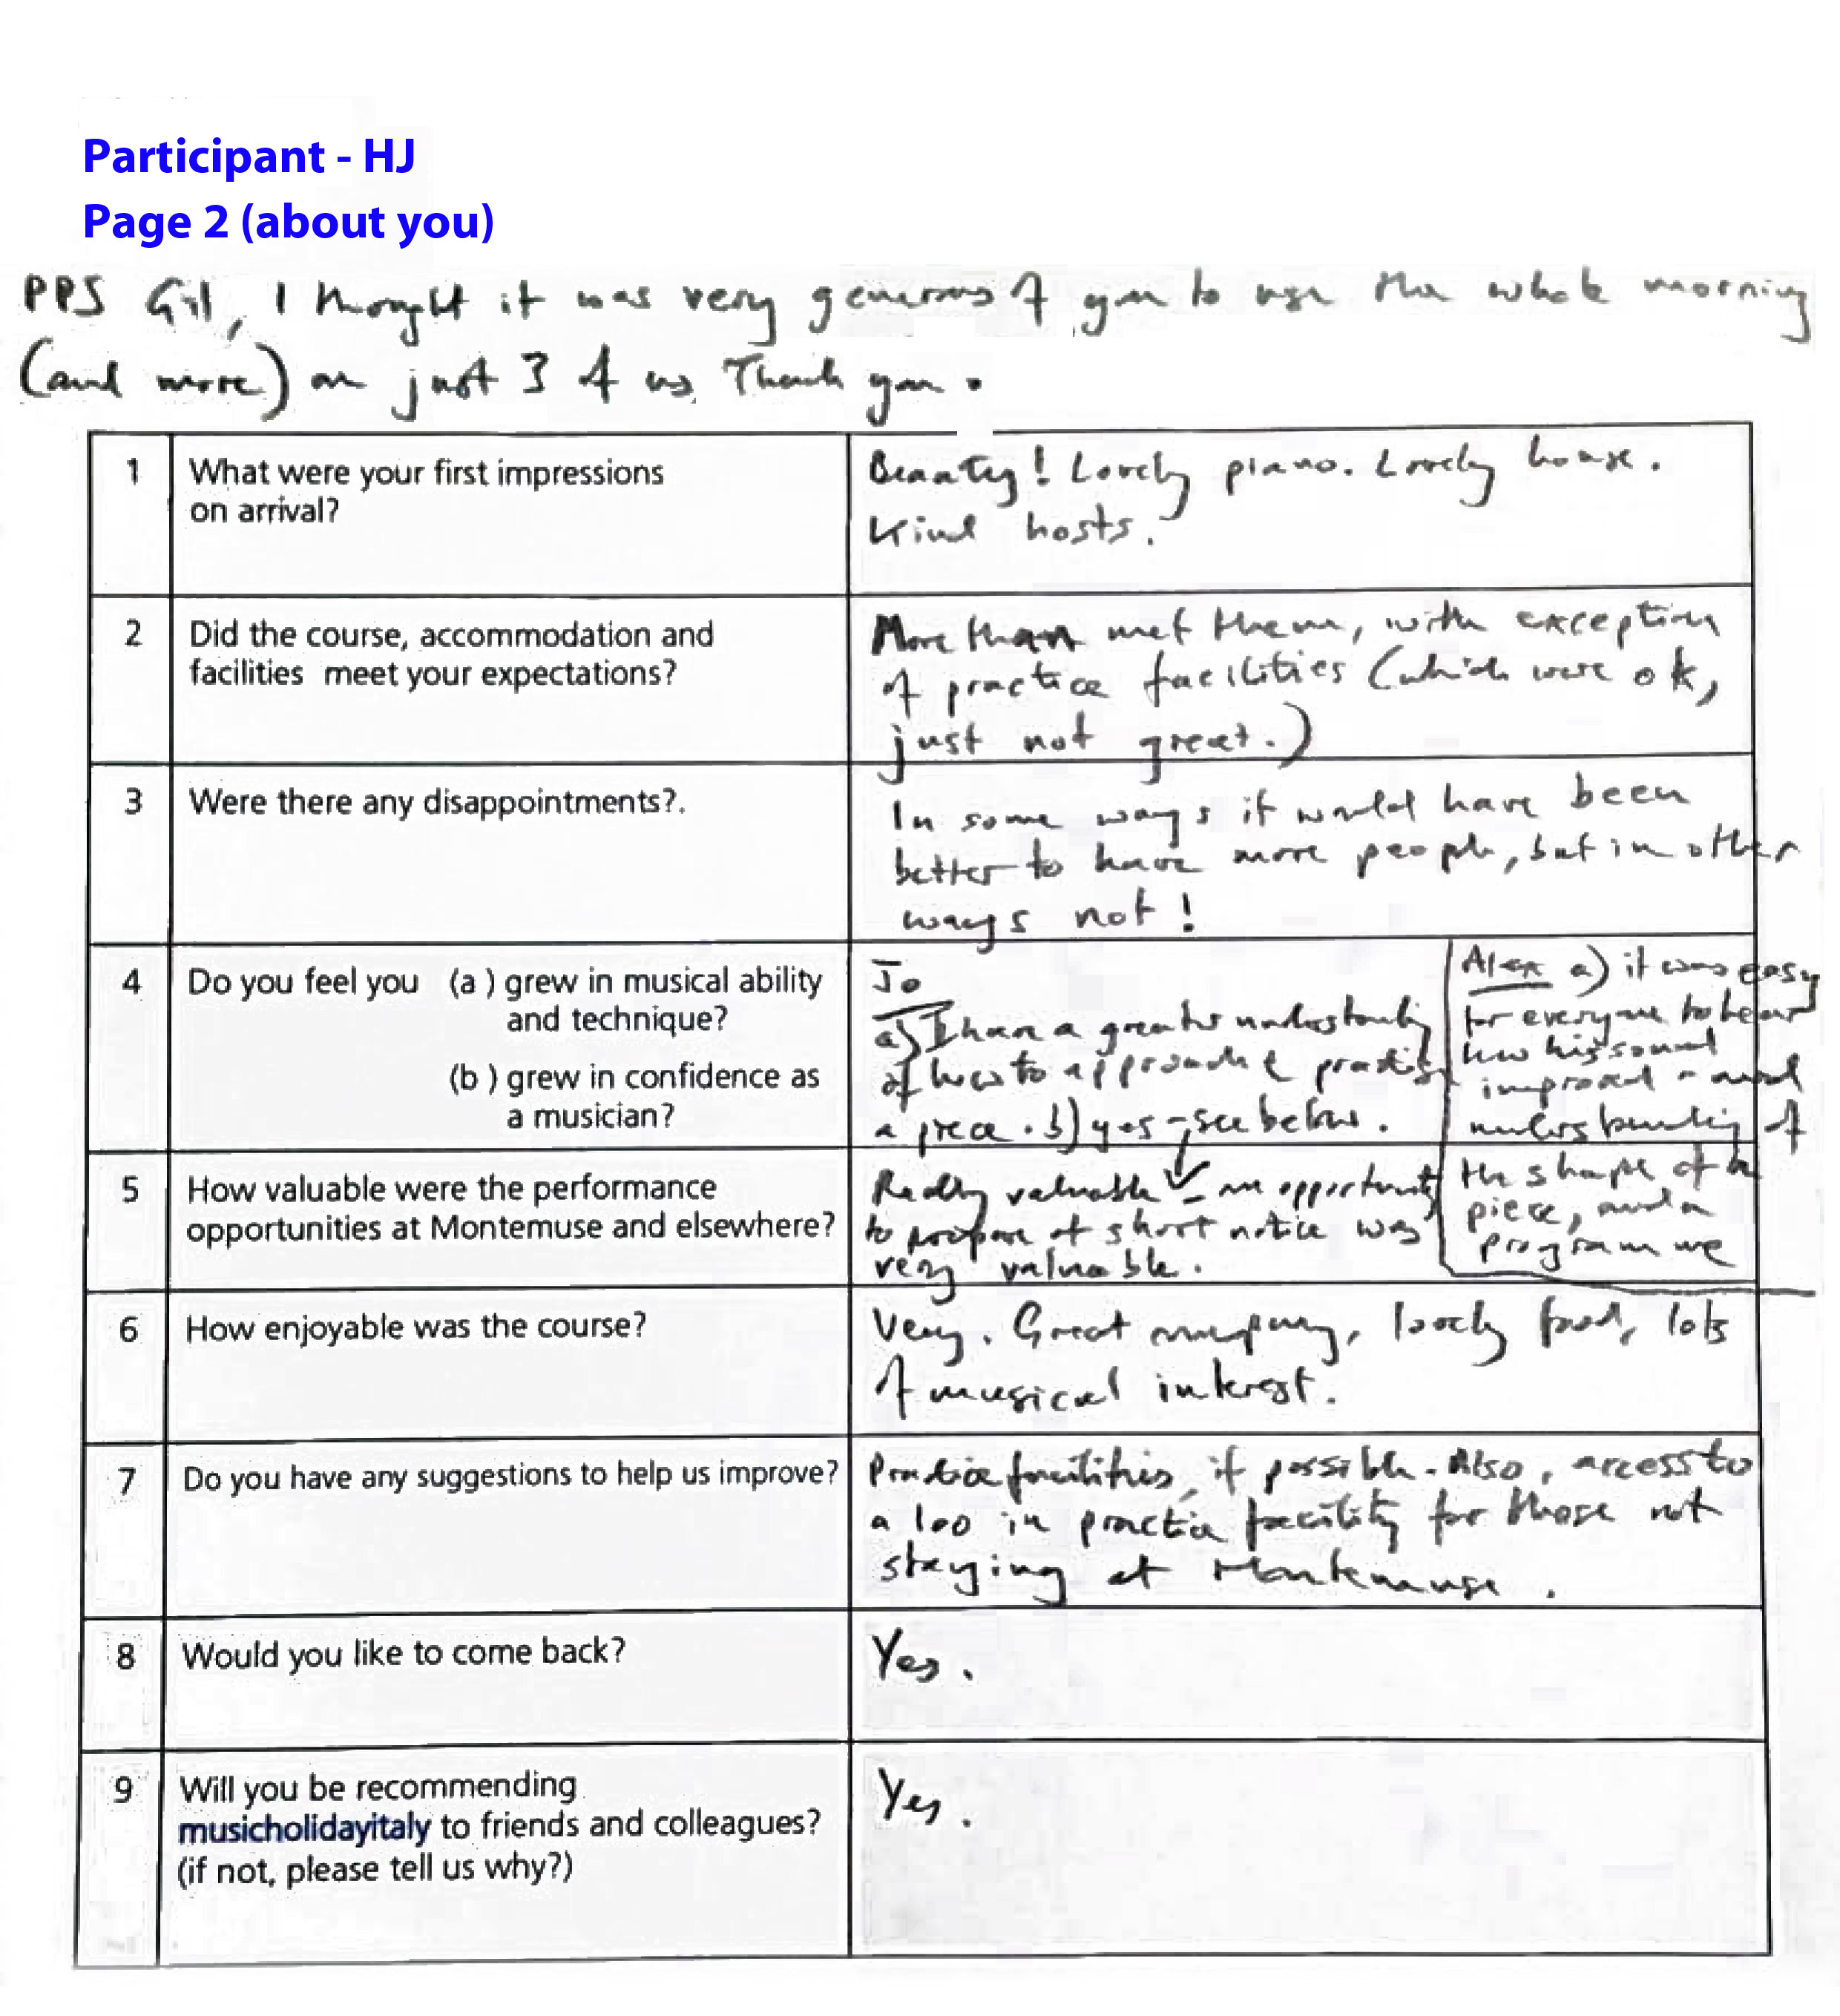 Participant - HJ
Page 2 (about you)
PPS Gil, I thought it was very generous of you to use the whole morning
(and more) on just 3 of us. Thank you.
1 What were your first impressions
on arrival?
Beauty! Lovely piano. Lovely house.
Kind hosts.
2 Did the course, accommodation and
facilities meet your expectations?
More than met them, with exception
of practice facilities (which were ok,
just not great.)
3 Were there any disappointments?.
In some ways it would have been
better to have more people, but in other
ways not!
4 Do you feel you (a ) grew in musical ability
and technique?
(b ) grew in confidence as
a musician?
Jo
a) I have a greater understanding
of how to approach & practise
a piece. b) yes - see below.
Alex a) it was easy
for everyone to hear
how his sound
improved - and
understanding of
the shape of a
piece, and a
programme
5 How valuable were the performance
opportunities at Montemuse and elsewhere?
Really valuable - an opportunity
to prepare at short notice was
very valuable.
6 How enjoyable was the course?
Very. Great company, lovely food, lots
of musical interest.
7 Do you have any suggestions to help us improve?
Practice facilities, if possible. Also, access to
a loo in practice facility for those not
staying at Montemuse.
8 Would you like to come back?
Yes.
9 Will you be recommending
musicholidayitaly to friends and colleagues?
(if not, please tell us why?)
Yes.